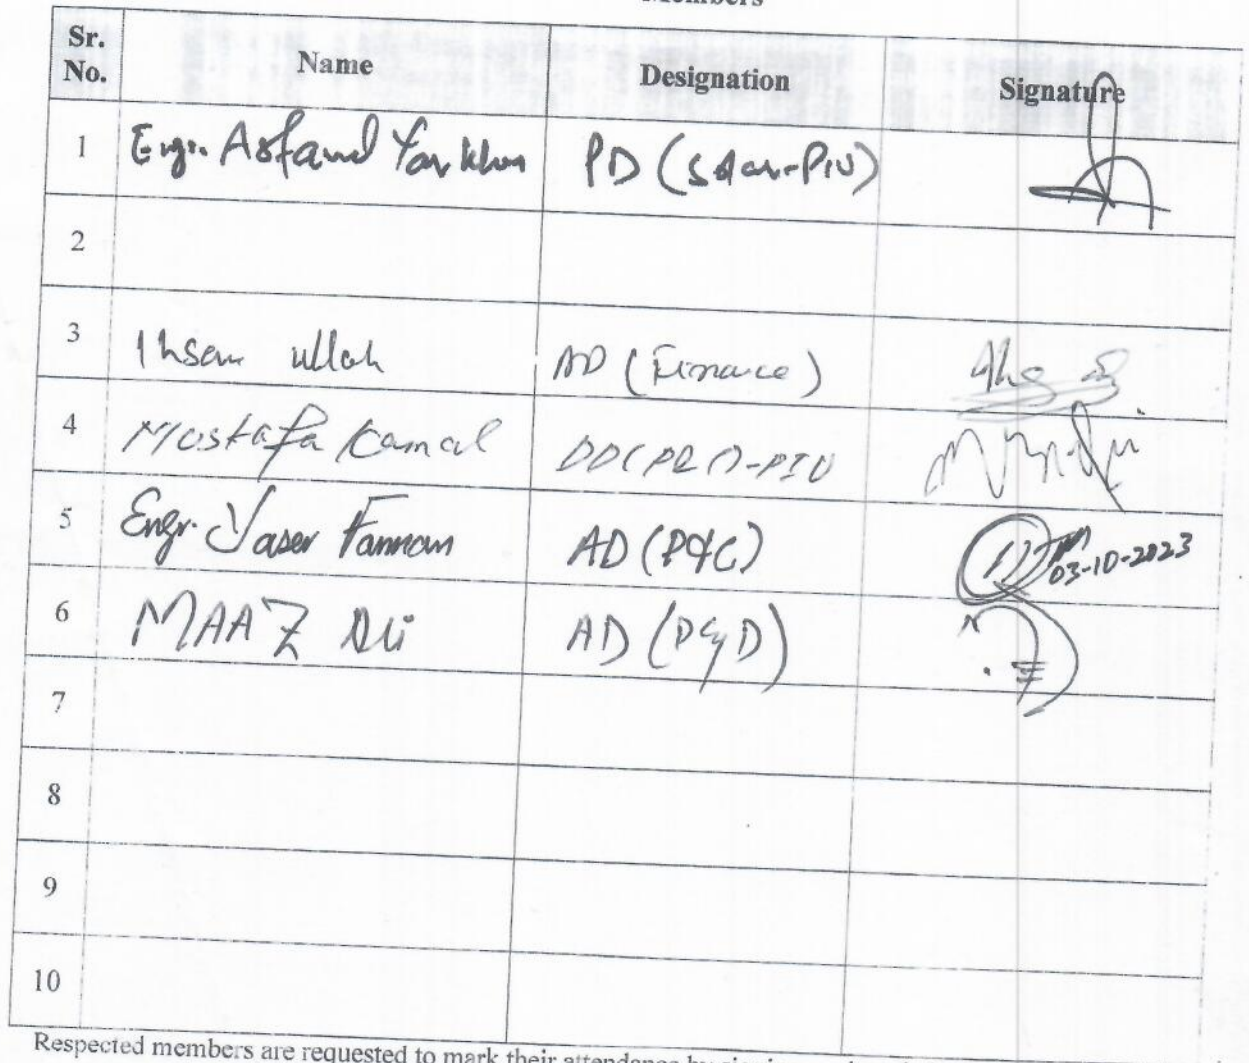 Members
Sr. No. Name Designation Signature
1 Engr. Asfand Yar Khan PD (Solar-PIU)
2
3 Ihsan ullah AD (Finance)
4 Mostafa Kamal DD( -PIU
5 Engr. Yaser Fannan AD (P&C) 03-10-2023
6 MAAZ Ali AD (P&D)
7
8
9
10
Respected members are requested to mark their attendance by